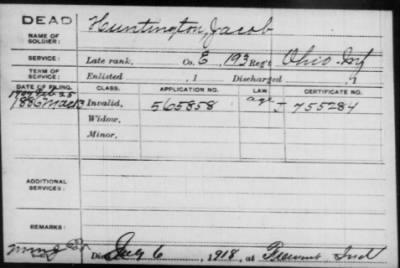 DEAD
NAME OF SOLDIER: Huntington, Jacob
SERVICE: Late rank, Co. E, 193 Reg't Ohio Inf
TERM OF SERVICE: Enlisted , 1 Discharged , 1
DATE OF FILING. CLASS. APPLICATION NO. LAW. CERTIFICATE NO.
1886 Mar 3 Invalid, 565858 age I 755284
Widow,
Minor,
ADDITIONAL SERVICES:
REMARKS:
Died 6, 1918, at Fremont Ind